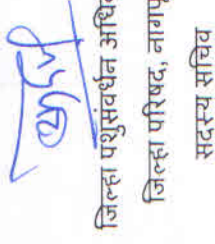 जिल्हा पशुसंवर्धन अधि
जिल्हा परिषद, नागपू
सदस्य सचिव